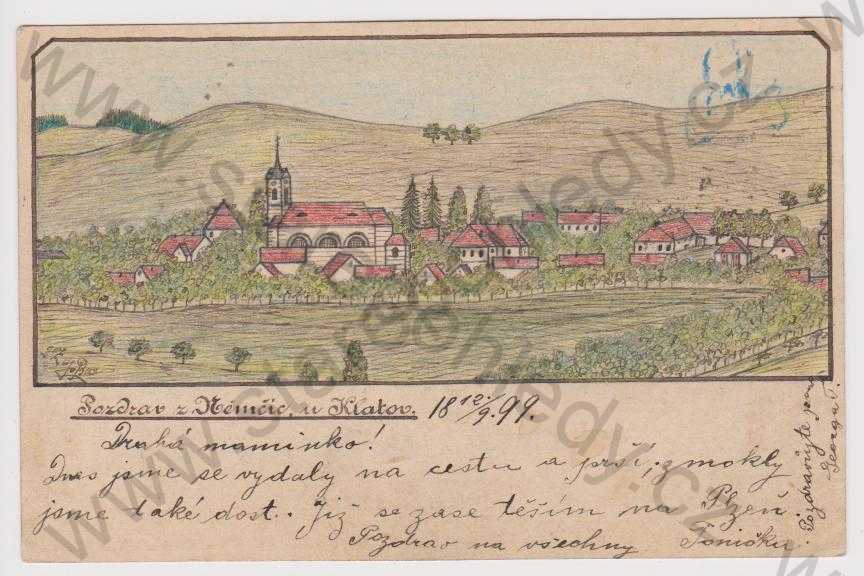 Pozdrav z Němčic, u Klatov. 18 12./9. 99.
Drahá maminko!
Dnes jsme se vydaly na cestu a prší, zmokly
jsme také dost. Již se zase těším na Plzeň.
Pozdrav na všechny Toničku.
Pozdravujte
www.starepohledy.cz